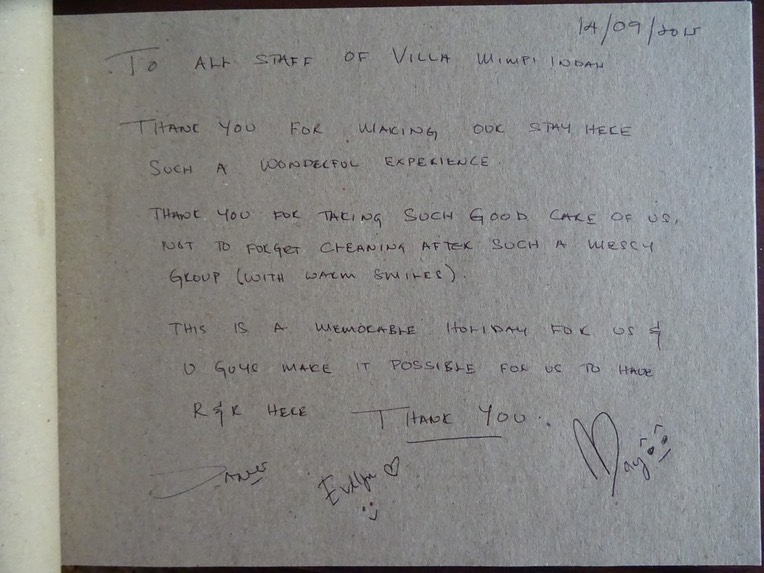 14/09/2015
TO ALL STAFF OF VILLA MIMPI INDAH
THANK YOU FOR MAKING OUR STAY HERE
SUCH A WONDERFUL EXPERIENCE.
THANK YOU FOR TAKING SUCH GOOD CARE OF US,
NOT TO FORGET CLEANING AFTER SUCH A MESSY
GROUP (WITH WARM SMILES).
THIS IS A MEMORABLE HOLIDAY FOR US &
U GUYS MAKE IT POSSIBLE FOR US TO HAVE
R&R HERE THANK YOU.
Evelyn May